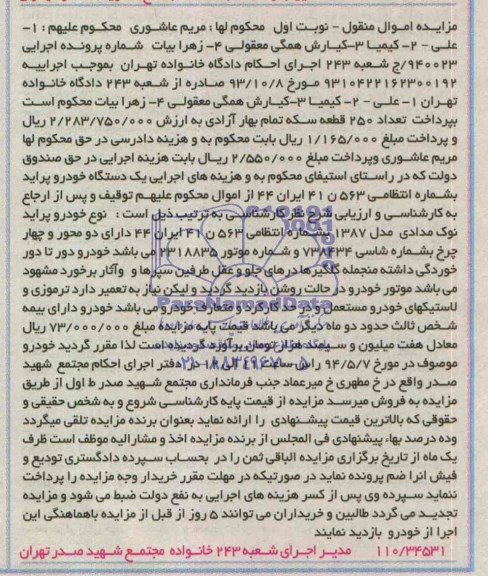 مزایـده امـوال منقول - نوبـت اول   محکوم لها : مریم عاشـوری   محکـوم علیهم : ۱-
علـی - ۲- کیمیـا ۳-کیـارش همگی معقولـی ۴- زهرا بیات   شماره پرونـده اجرایی
۹۴۰۰۲۳/ج شعبه ۲۴۳ اجرای احکام دادگاه خانـواده تهـران  بموجـب اجراییـه
۹۳۱۰۴۲۲۱۶۲۳۰۰۱۹۲ مـورخ ۹۳/۱۰/۸ صـادره از شـعبه ۲۴۳ دادگاه خانـواده
تهـران ۱- علـی - ۲- کیمیـا ۳-کیـارش همگی معقولـی ۴- زهرا بیات محکوم اسـت
بپرداخـت  تعداد ۲۵۰ قطعه سـکه تمام بهار آزادی به ارزش  ۲/۲۸۳/۷۵۰/۰۰۰ ریال
و پرداخت مبلغ ۱/۱۶۵/۰۰۰ ریال بابت محکوم به و هزینه دادرسی در حق محکوم لها
مریم عاشـوری وپرداخت مبلغ ۲/۵۵۰/۰۰۰ ریـال بابت هزینه اجرایی در حق صندوق
دولت که در راسـتای استیفای محکوم به و هزینه های اجرایی یک دستگاه خودرو پراید
بشـماره انتظامـی ۵۶۳ ن ۴۱ ایران ۴۴ از اموال محکوم علیهـم توقیف و پس از ارجاع
به کارشناسـی و ارزیابی شـرح نظر کارشناسـی به ترتیب ذیل اسـت :   نوع خودرو پراید
نوک مدادی  مدل ۱۳۸۷ بشـماره انتظامی ۵۶۳ ن ۴۱ ایران ۴۴ دارای دو محور و چهار
چرخ بشـماره شاسی ۷۳۸۴۳۴ و شـماره موتور ۲۳۱۸۸۳۵ می باشد خودرو دور تا دور
خوردگی داشته منجمله گلگیرها درهای جلو و عقل طرفین سپرها و  وآثار برخورد مشهود
می باشد موتور خودرو در حالت روشن بازدید گردید و لیکن نیاز به تعمیر دارد ترموزی و
لاستیکهای خودرو مستعمل و در حد کارکرد و متعارف خودرو می باشد خودرو دارای بیمه
شـخص ثالث حدود دو ماه دیگر می باشد، قیمت پایه مزایده مبلغ ۷۳/۰۰۰/۰۰۰ ریال
معادل هفت میلیون و سـیصد هزار تومان برآورد گردیده اسـت لذا مقرر گردید خودرو
موصوف در مورخ ۹۴/۵/۷ راس ساعت ۱۱ الی ۱۲ در دفتر اجرای احکام مجتمع  شهید
صـدر واقع در خ مطهری خ میرعماد جنب فرمانداری مجتمع شـهید صدر ط اول از طریق
مزایده به فروش میرسـد مزایده از قیمت پایه کارشناسـی شروع و به شخص حقیقی و
حقوقی که بالاترین قیمت پیشـنهادی  را ارائه نماید بعنوان برنده مزایده تلقی میگردد
وده درصد بها، پیشنهادی فی المجلس از برنده مزایده اخذ و مشارالیه موظف است ظرف
یک ماه از تاریخ برگزاری مزایده الباقی ثمن را در  بحسـاب سـپرده دادگستری تودیع و
فیش انرا ضم پرونده نماید در صورتیکه در مهلت مقرر خریدار وجه مزایده را پرداخت
ننماید سـپرده وی پس از کسر هزینه های اجرایی به نفع دولت ضبط می شود و مزایده
تجدیـد می گردد طالبین و خریداران می توانند ۵ روز از قبل از مزایده باهماهنگی این
اجرا از خودرو  بازدید نمایند
۱۱۰/۳۴۵۳۱     مدیـر اجـرای شـعبه ۲۴۳ خانـواده  مجتمـع شـهید صـدر تهران
ParsNamadData